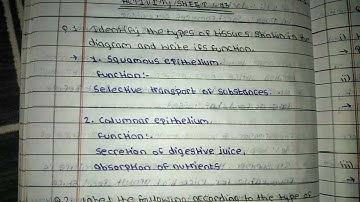 ACTIVITY SHEET
Q.1 Identify the types of tissues shown in the
diagram and write its function.
→ 1. Squamous epithelium
Function:-
Selective transport of substances.
2. Columnar epithelium
Function:-
secretion of digestive juice,
absorption of nutrients
Q.2 Label the following according to the type of
i)
ii)
iii)